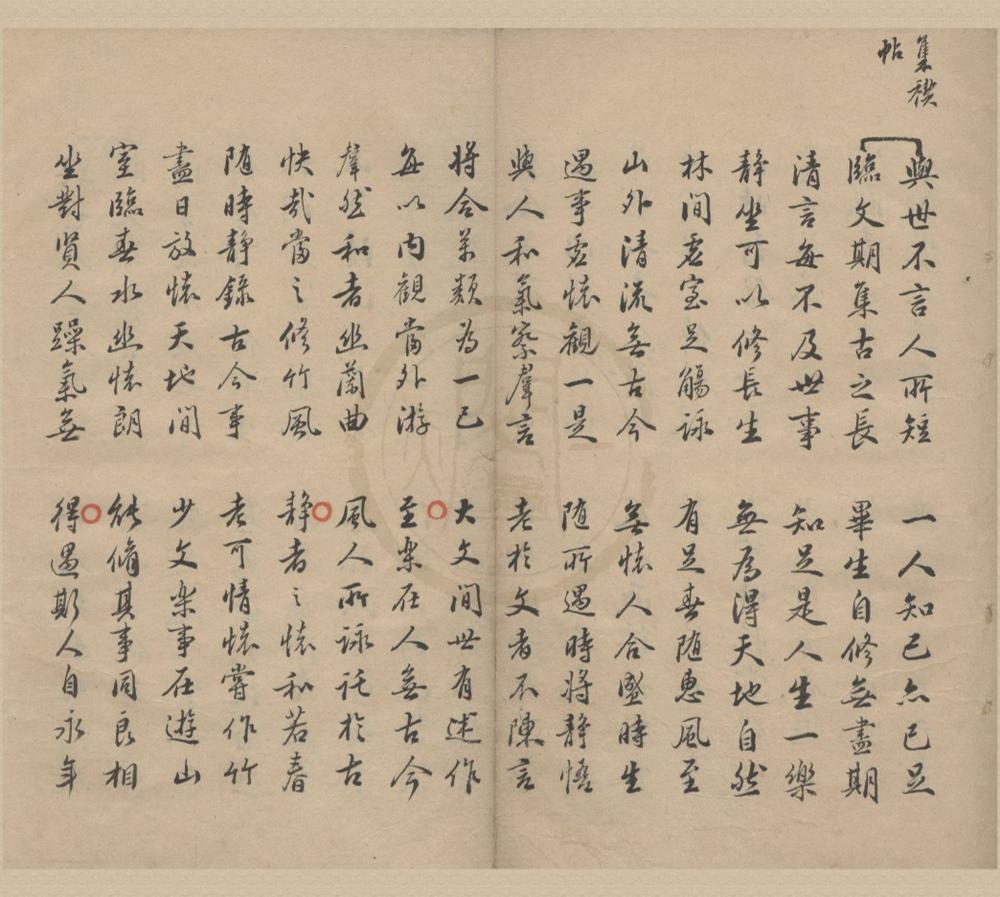 集禊
帖
與世不言人所短 一人知己亦已足
臨文期集古之長 畢生自修無盡期
清言每不及世事 知足是人生一樂
靜坐可以修長生 無為得天地自然
林間虛室足觴詠 有足春随惠風至
山外清流無古今 無懷人合盛時生
遇事虛懷觀一是 随所遇時將靜悟
與人和氣察羣言 老於文者不陳言
將合萬類為一己 大文間世有述作
每以內觀當外游 至樂在人無古今
羣然和者幽蘭曲 風人所詠託於古
快哉當之修竹風 靜者之懷和若春
随時靜錄古今事 老可情懷嘗作竹
盡日放懷天地間 少文樂事在遊山
室臨春水幽懷朗 能脩其事同良相
坐對賢人躁氣無 得遇斯人自永年